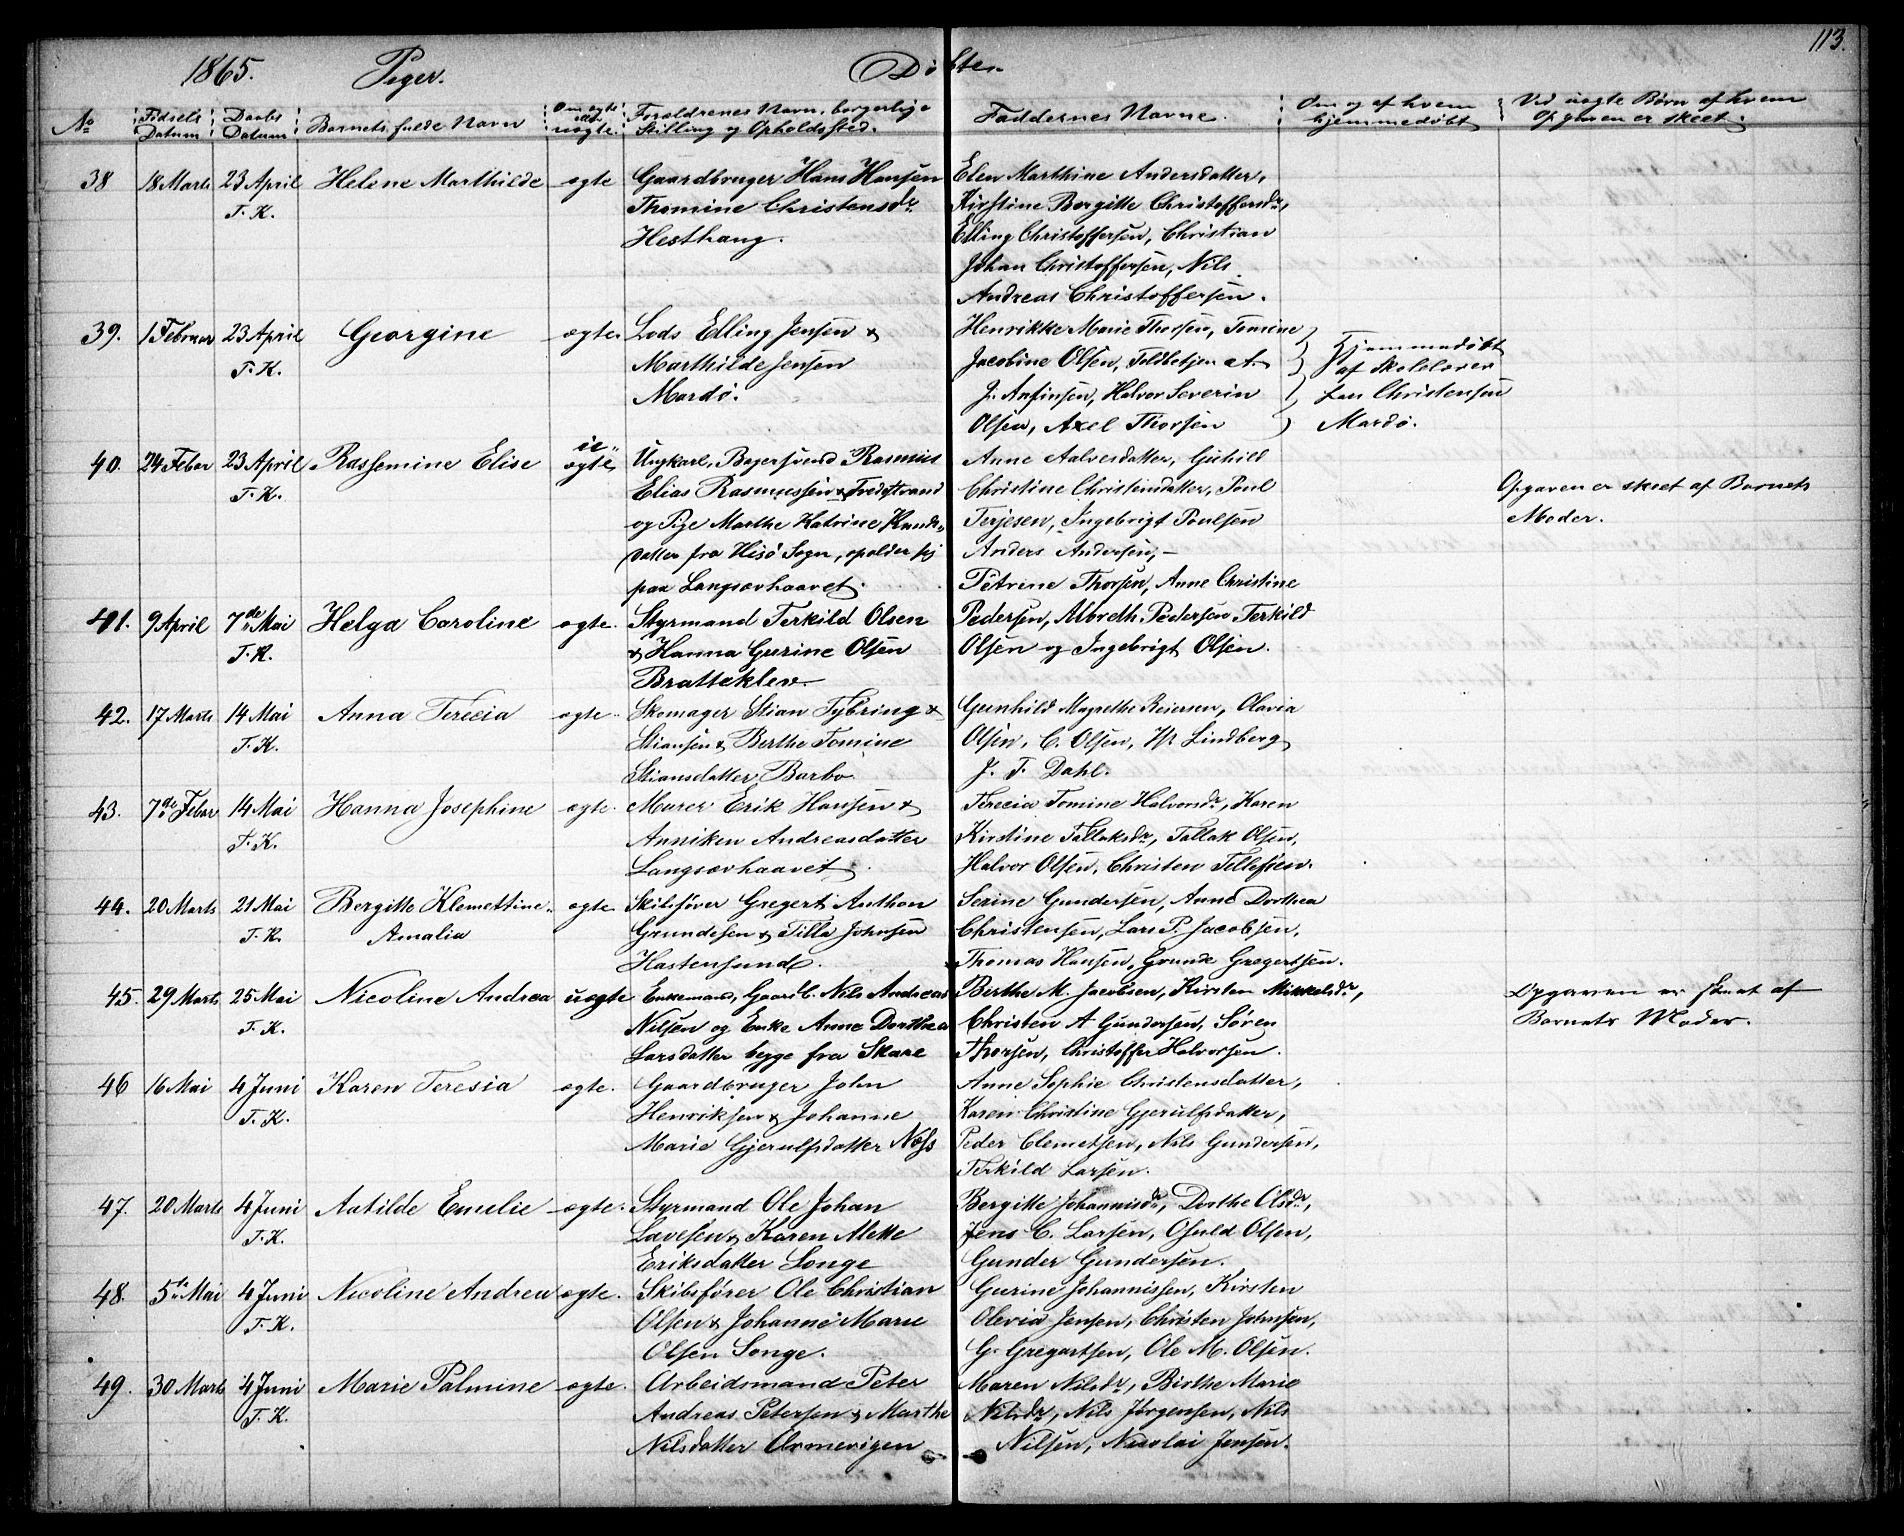 113.
1865. Piger. Døbte.
No
Fødsels Datum
Daabs Datum
Barnets fulde Navn
Om ægte eller uægte.
Forældrenes Navn, borgerlige Stilling og Opholdssted.
Faddernes Navne.
Om og af hvem hjemmedøbt
Ved uægte Børn af hvem Opgaven er skeet.
38 18 Marts 23 April Helene Marthilde ægte Gaardbruger Hans Hansen Elen Marthine Andersdatter,
T. K. Thomine Christensdr Kirstine Bergitte Christoffersdr,
Hesthaug. Elling Christoffersen, Christian
Johan Christoffersen, Nils
Andreas Christoffersen.
39. 1 Februar 23 April Georgine ægte. Lods Elling Jensen & Henrikke Marie Thorsen, Tomine Hjemmedøbt
T. K. Marthilde Jensen Jacobine Olsen, Toldbetjent A. af Skolelærer
Mærdø. J. Anfinsen, Halvor Severin Lars Christensen
Olsen, Axel Thorsen Mærdø.
40. 24 Febar 23 April Rassemine Elise u- ægte Ungkarl, Bagersvend Rasmus Anne Aalvesdatter, Gunhild
T. K. Elias Rasmussen & Fredstrand Christine Christensdatter, Poul Opgaven er skeet af Barnets
og Pige Marthe Katrine Knuds- Terjesen, Ingebrigt Poulsen Moder.
datter fra Hisø Sogn, opolder sig Anders Andersen, –
paa Langsævhaavet. Petrine Thorsen, Anne Christine
41. 9 April 7de Mai Helga Caroline ægte. Styrmand Terkild Olsen Pedersen, Albreth Pedersen Terkild
T. K. & Hanna Gurine Olsen Olsen og Ingebrigt Olsen.
Bratteklev.
42. 17 Marts 14 Mai Anna Terecia ægte. Skomager Stian Tybring & Gunhild Magrethe Reiersen, Olavia
T. K. Stiansen & Berthe Tomine Olsen, C. Olsen, Hr Lindberg
Stiansdatter Barbo J. T. Dahl.
43. 7de Febar 14 Mai Hanna Josephine ægte. Murer Erik Hansen & Terecia Tomine Halvorsdr, Karen
T. K. Anniken Andreasdatter Kirstine Tallaksdr, Tallak Olsen,
Langsævhaavet. Halvor Olsen, Christen Tellefsen.
44. 20 Marts 21 Mai Bergitte Klemettine ægte Skibsfører Gregert Anthon Serine Gundersen, Anne Dorthea
T. K. Amalia Grundesen & Tilla Johnsen Christensen, Lars P. Jacobsen,
Hastensund. Thomas Hansen, Grunde Gregertsen.
45. 29 Marts 25 Mai Nicoline Andrea uægte Enkemand, Gaardb. Nils Andreas Berthe M. Jacobsen, Kirsten Mikkelsdr, Opgaven er skeet af
T. K. Nilsen og Enke Anne Dorthea Christen A Gundersen, Søren Barnets Moder.
Larsdatter begge fra Skare Thorsen, Christoffer Halvorsen.
46 16 Mai 4 Juni Karen Teresia ægte. Gaardbruger John Anne Sophie Christensdatter,
T. K. Henriksen & Johanne Karen Christine Gjerulfsdatter,
Marie Gjerulfsdatter Næss Peder Clemetsen, Nils Gundersen,
Terkild Larsen.
47. 20 Marts 4 Juni Aatilde Emelie ægte. Styrmand Ole Johan Bergitte Johannisdr, Dorthe Olsdr,
T. K. Lavesen & Karen Mette Jens C. Larsen, Osuld Olsen,
Eriksdatter Songe Gunder Gundersen.
48. 5te Mai 4 Juni Nicoline Andrea ægte. Skibsfører Ole Christian Gurine Johannissen, Kirsten
T. K. Olsen & Johanne Marie Olevia Jensen, Christen Johnsen,
Olsen Songe. G. Gregartsen, Ole M. Olsen.
49. 30 Marts 4 Juni Marie Palmine ægte. Arbeidsmand Peter Maren Nilsdr, Birthe Marie
T. K. Andreas Petersen & Marthe Nilsdr, Nils Jørgensen, Nils
Nilsdatter Armevigen Nilsen, Nicolai Jensen.